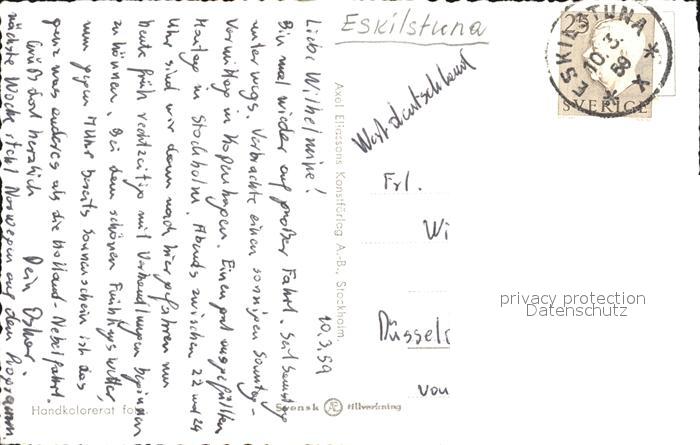 Eskilstuna
ESKILSTUNA
10.3.59
25
SVERIGE
10.3.59
Liebe Wilhelmine!
Bin mal wieder auf großer Fahrt. Seit Samstag
unterwegs. Verbrachte einen sonnigen Sonntag-
Vormittag in Kopenhagen. Einen gut ausgefüllten
Montag in Stockholm. Abends zwischen 22 und 24
Uhr sind wir dann nach hier gefahren um
heute früh rechtzeitig mit Verhandlungen beginnen
zu können. Bei dem schönen Frühlingswetter,
nun gegen Uhr bereits Sonnenschein ist das
ganz was anderes als die Holland Nebelfahrt.
Grüß dort herzlich
Dein Oskar.
nächste Woche steht Norwegen auf dem Programm
Axel Eliassons Konstförlag A.-B., Stockholm.
Westdeutschland
Frl.
Wi
Düssel
von
privacy protection
Datenschutz
Handkolorerat fo
Svensk AE tillverkning